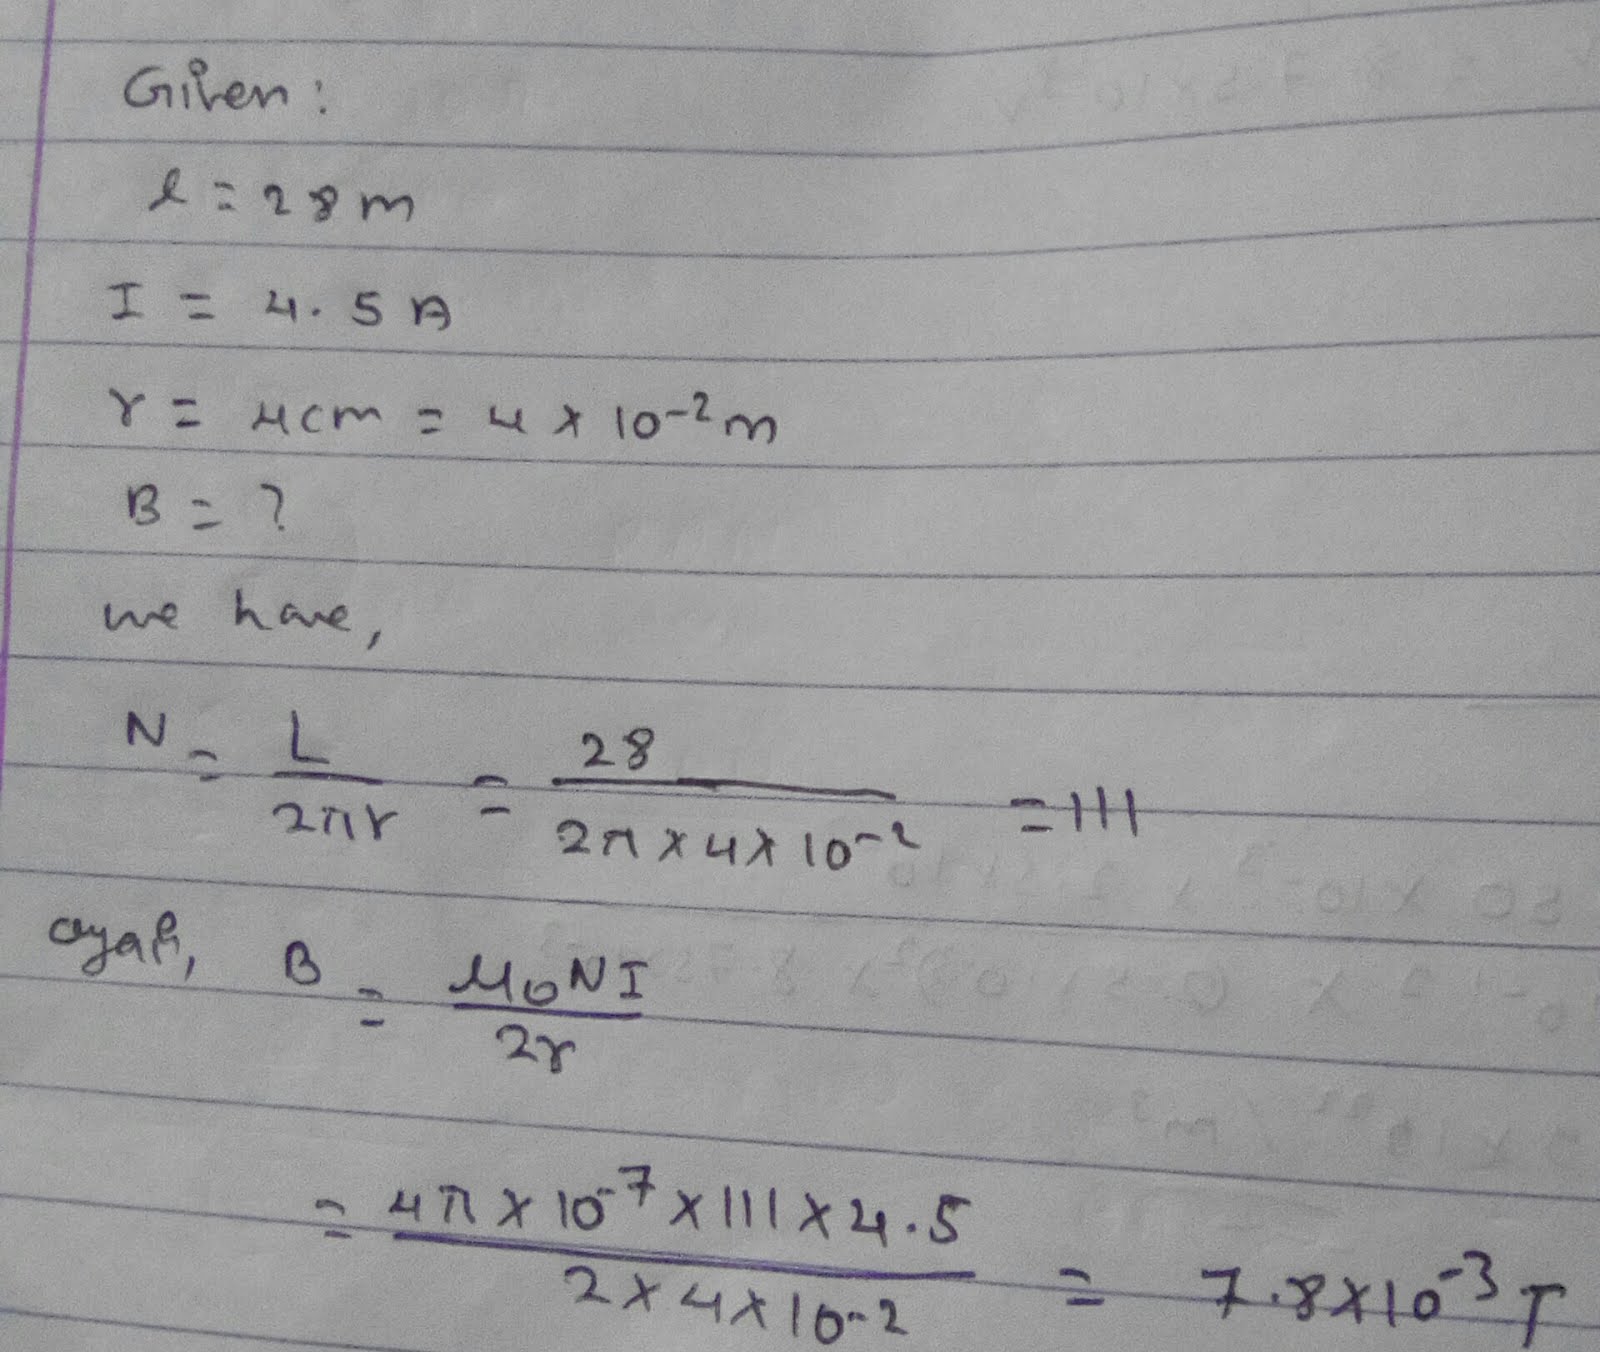 Given:
l = 28 m
I = 4.5 A
r = 4cm = 4 × 10⁻² m
B = ?
we have,
N = L / 2πr = 28 / 2π × 4 × 10⁻² = 111
B = μ₀NI / 2r
= 4π × 10⁻⁷ × 111 × 4.5 / 2 × 4 × 10⁻² = 7.8 × 10⁻³ T